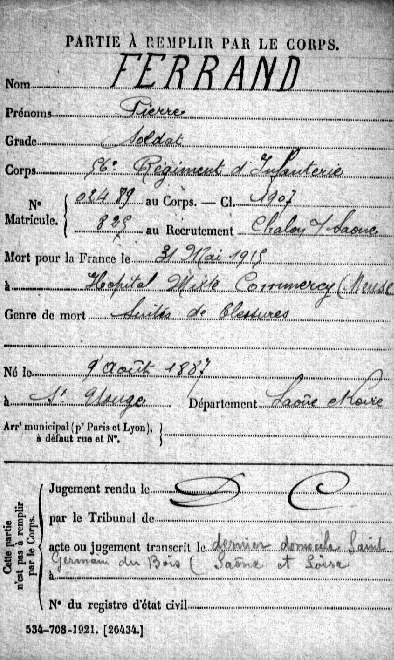 PARTIE À REMPLIR PAR LE CORPS.
Nom FERRAND
Prénoms Pierre
Grade Soldat
Corps 56e Régiment d'Infanterie
N° 02489 au Corps. — Cl. 1907
Matricule. 825 au Recrutement Chalon s/Saône
Mort pour la France le 31 Mai 1915
à Hopital Mixte Commercy (Meuse
Genre de mort Suites de blessures
Né le 9 Août 1887
à St Usuge Département Saône et Loire
Arrt municipal (pr Paris et Lyon),
à défaut rue et N°.
Cette partie
n'est pas à remplir
par le Corps.
Jugement rendu le D C
par le Tribunal de
acte ou jugement transcrit le dernier domicile Saint
à Germain du Bois (Saône et Loire
N° du registre d'état civil
534-708-1921. [26434.]